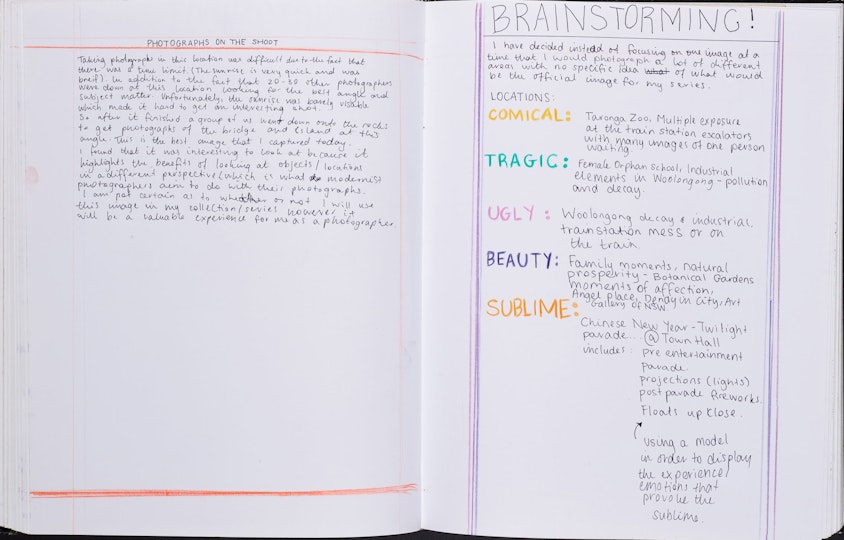 PHOTOGRAPHS ON THE SHOOT
Taking photographs in this location was difficult due to the fact that
there was a time limit (The sunrise is very quick and was
breif). In addition to the fact that 20-30 other photographers
were down at this location looking for the best angle and
subject matter. Unfortunately, the sunrise was barely visible
which made it hard to get an interesting shot.
So after it finished a group of us went down onto the rocks
to get photographs of the bridge and island at this
angle. This is the best image that I captured today.
I found that it was interesting to look at because it
highlights the benefits of looking at objects/locations
in a different perspective (which is what modernist
photographers aim to do with their photographs.
I am not certain as to whether or not I will use
this image in my collection/series however it
will be a valuable experience for me as a photographer.
BRAINSTORMING!
I have decided instead of focusing on one image at a
time that I would photograph a lot of different
areas with no specific idea what of what would
be the official image for my series.
LOCATIONS:
COMICAL: Taronga Zoo, Multiple exposure
at the train station escalators
with many images of one person
waiting
TRAGIC: Female Orphan School, Industrial
elements in Woolongong - pollution
and decay.
UGLY: Woolongong decay & industrial.
trainstation mess or on
the train.
BEAUTY: Family moments, natural
prosperity - Botanical Gardens
moments of affection,
Angel place, Dendy in City, Art
Gallery of NSW
SUBLIME:
Chinese New Year - Twilight
parade... @ Town Hall
includes: pre entertainment
parade.
projections (lights)
post parade fireworks.
Floats up close.
using a model
in order to display
the experience/
emotions that
provoke the
sublime.